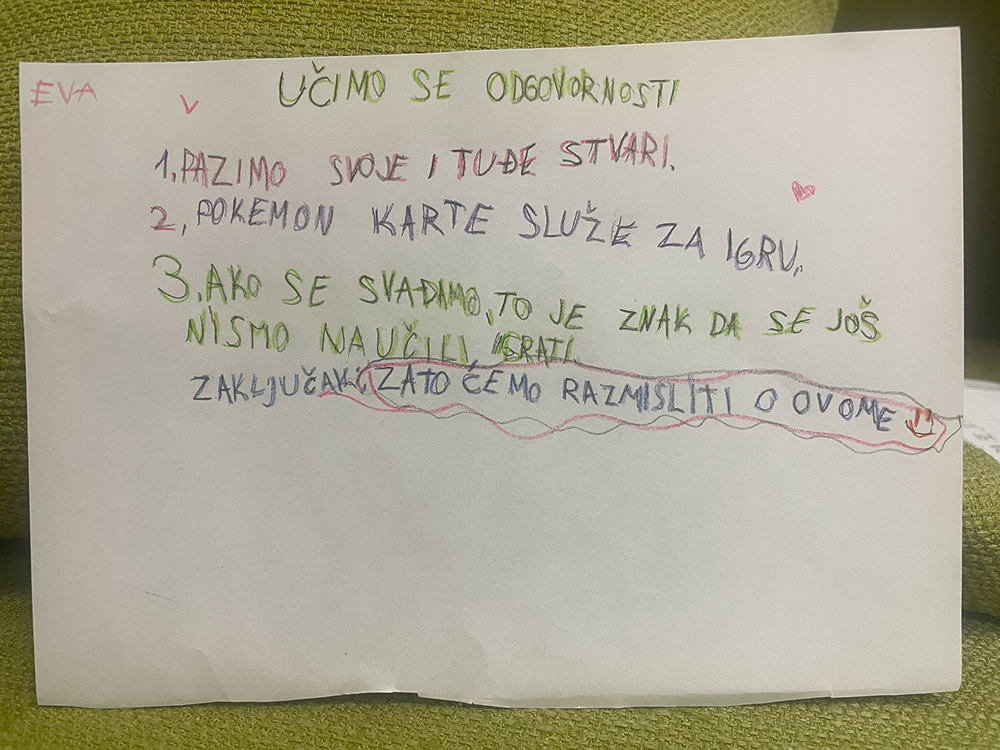 EVA
UČIMO SE ODGOVORNOSTI
1. PAZIMO SVOJE I TUĐE STVARI.
2, POKEMON KARTE SLUŽE ZA IGRU.
3. AKO SE SVAĐAMO, TO JE ZNAK DA SE JOŠ
NISMO NAUČILI IGRATI.
ZAKLJUČAK: ZATO ĆEMO RAZMISLITI O OVOME